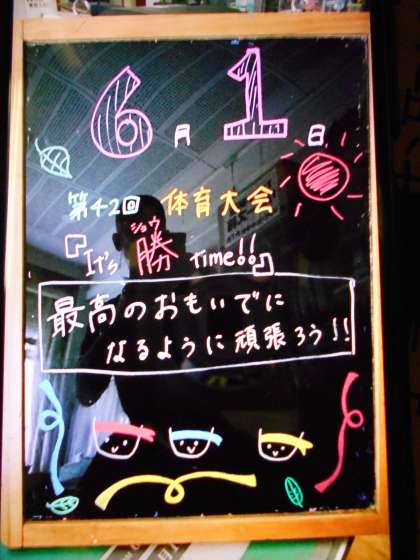 6月1日
第42回 体育大会
『It's 勝 Time!!』
ショウ
最高のおもいでに
なるように頑張ろう!!